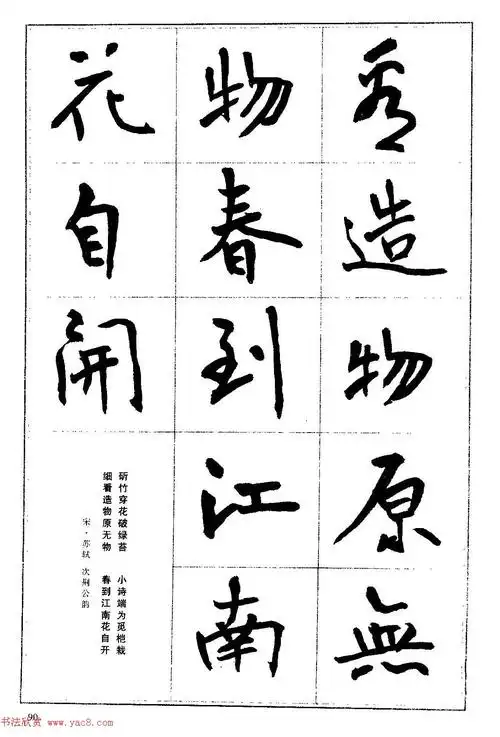 看造物原無
物春到江南
花自開
斫竹穿花破绿苔　小诗端为觅桤栽
细看造物原无物　春到江南花自开
宋·苏轼 次荆公韵
90
书法欣赏 www.yac8.com